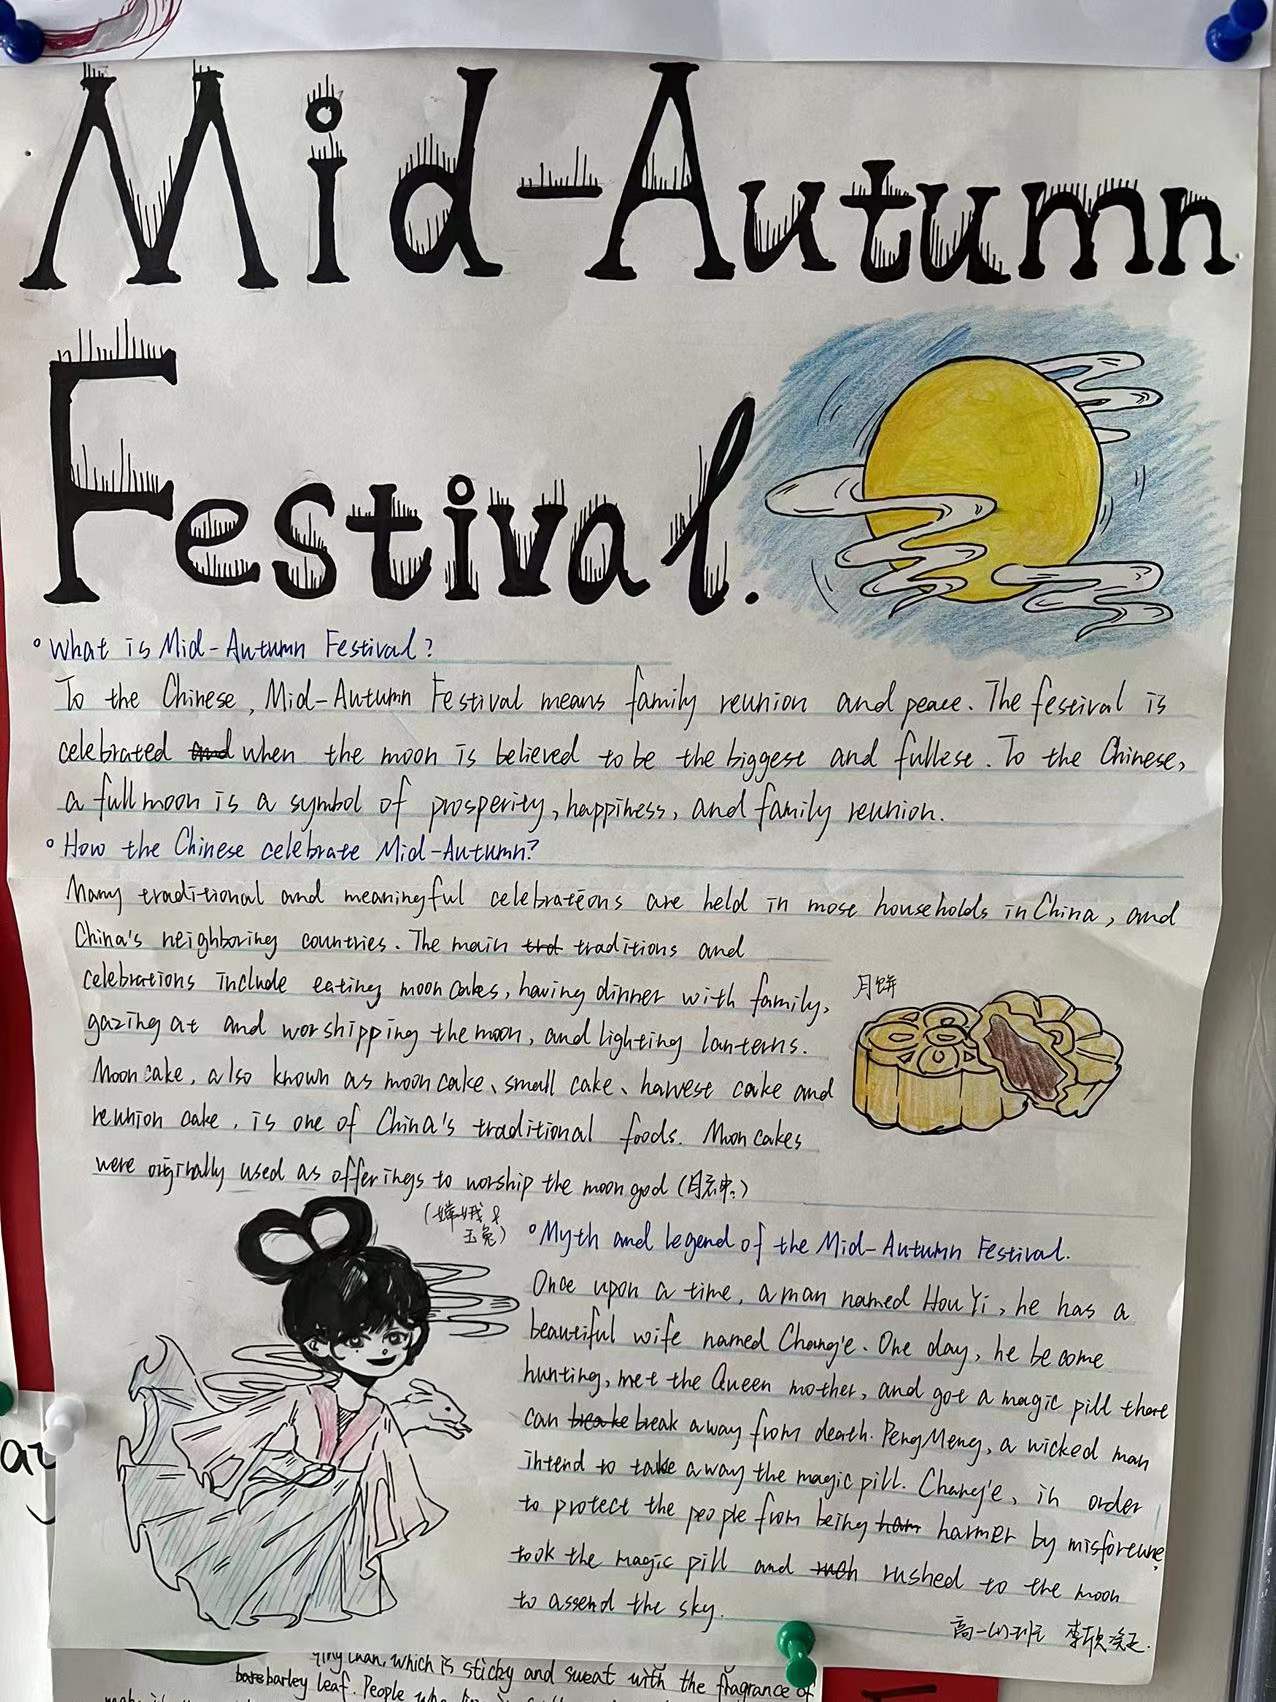 Mid-Autumn
Festival.
What is Mid-Autumn Festival?
To the Chinese, Mid-Autumn Festival means family reunion and peace. The festival is
celebrated and when the moon is believed to be the biggest and fullese. To the Chinese,
a full moon is a symbol of prosperity, happiness, and family reunion.
How the Chinese celebrate Mid-Autumn?
Many traditional and meaningful celebrations are held in most households in China, and
China's neighboring countries. The main trd traditions and
celebrations include eating moon cakes, having dinner with family,
gazing at and worshipping the moon, and lighting lanterns.
月饼
Moon cake, also known as moon cake、small cake、harvest cake and
reunion cake, is one of China's traditional foods. Moon cakes
were originally used as offerings to worship the moon god (月亮神。)
(嫦娥&
玉兔)
Myth and legend of the Mid-Autumn Festival.
Once upon a time, a man named Hou Yi, he has a
beautiful wife named Chang'e. One day, he become
hunting, met the Queen mother, and got a magic pill there
can break away from death. PengMeng, a wicked man
intend to take away the magic pill. Chang'e, in order
to protect the people from being ham harmer by misfortune,
took the magic pill and rush rushed to the moon
to assend the sky.
高一 班 李欣
which is sticky and sweat with the fragrance of
barley leaf. People